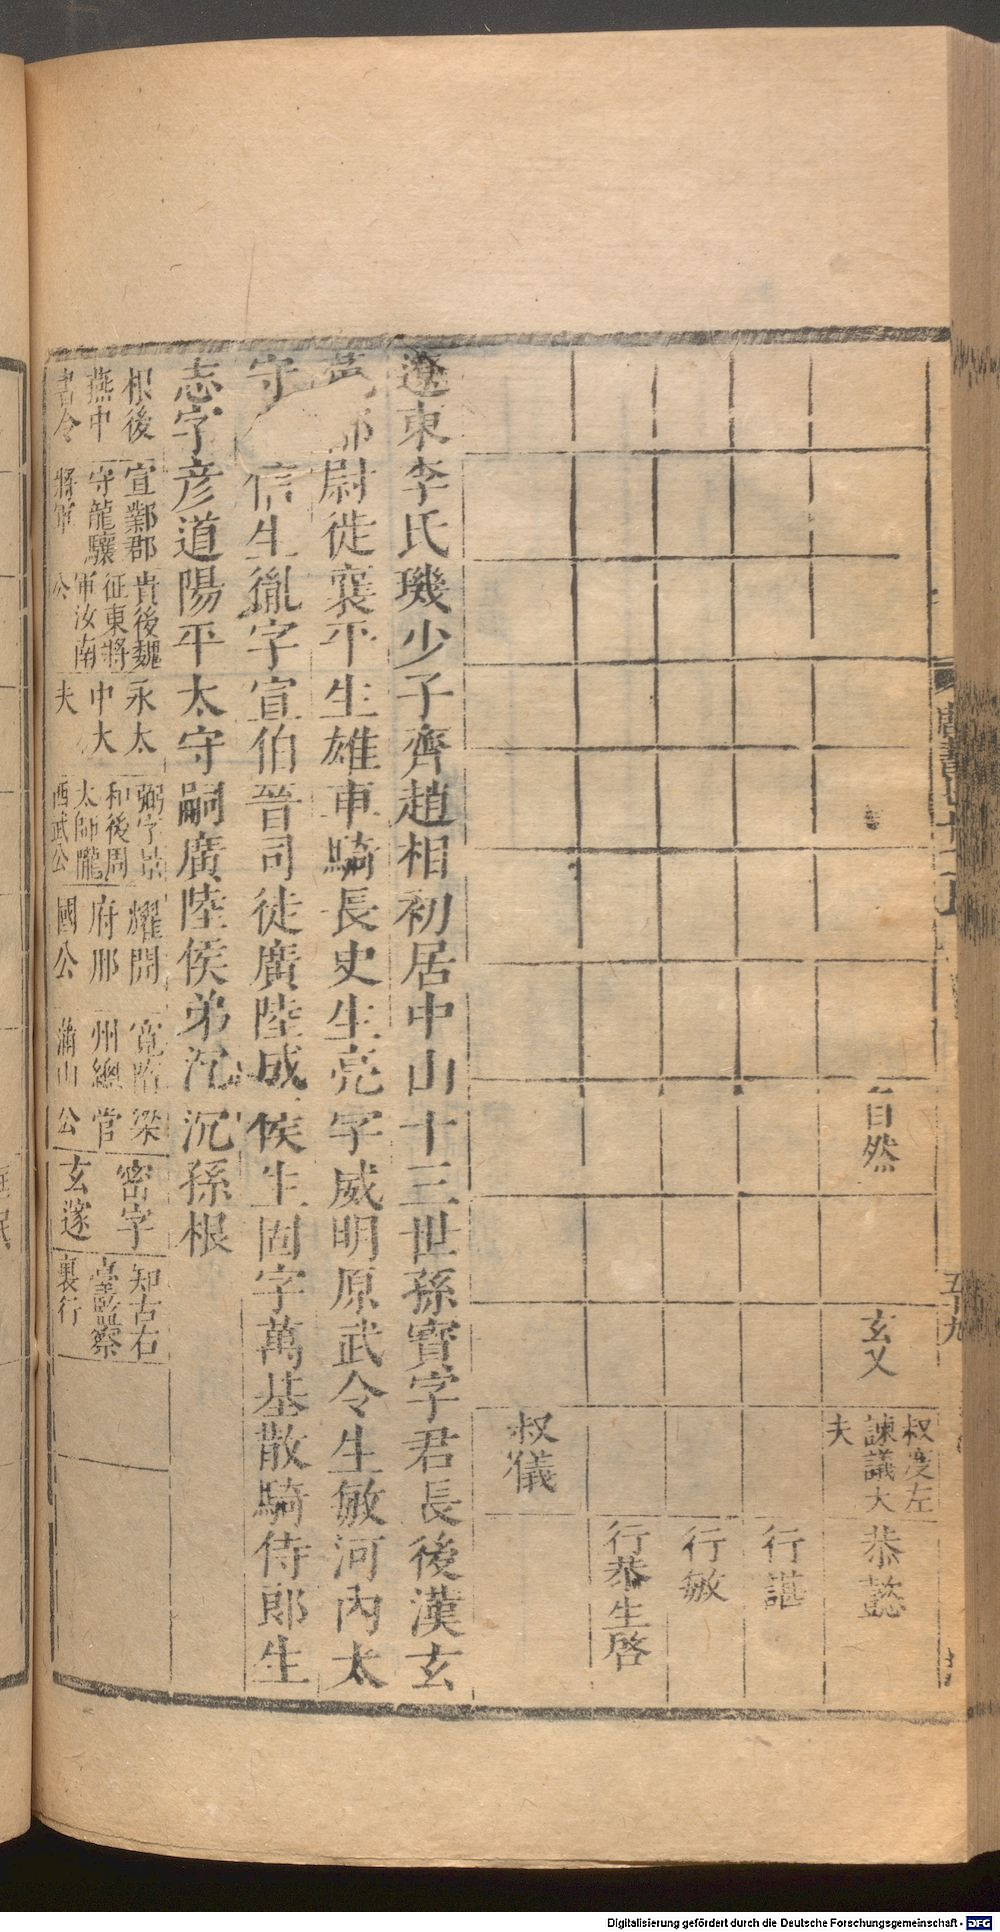 自然
玄乂
叔度左
諫議大
夫
恭懿
行諶
行敏
行恭生啓
叔儀
遼東李氏璣少子齊趙相初居中山十三世孫寶字君長後漢玄
都尉徙襄平生雄車騎長史生亮字威明原武令生敏河內太
守
信生胤字宣伯晉司徒廣陸成侯生固字萬基散騎侍郎生
志字彥道陽平太守嗣廣陸侯弟沉沉孫根
根後
燕中
書令
宣鄴郡
守龍驤
將軍
貴後魏
征東將
軍汝南
公
永太
中大
夫
弼字景
和後周
太師隴
西武公
耀開
府邢
國公
寬隋梁
州總管
蒲山公
密字
玄邃
知古右
臺監察
裏行
五十九
Digitalisierung gefördert durch die Deutsche Forschungsgemeinschaft - DFG